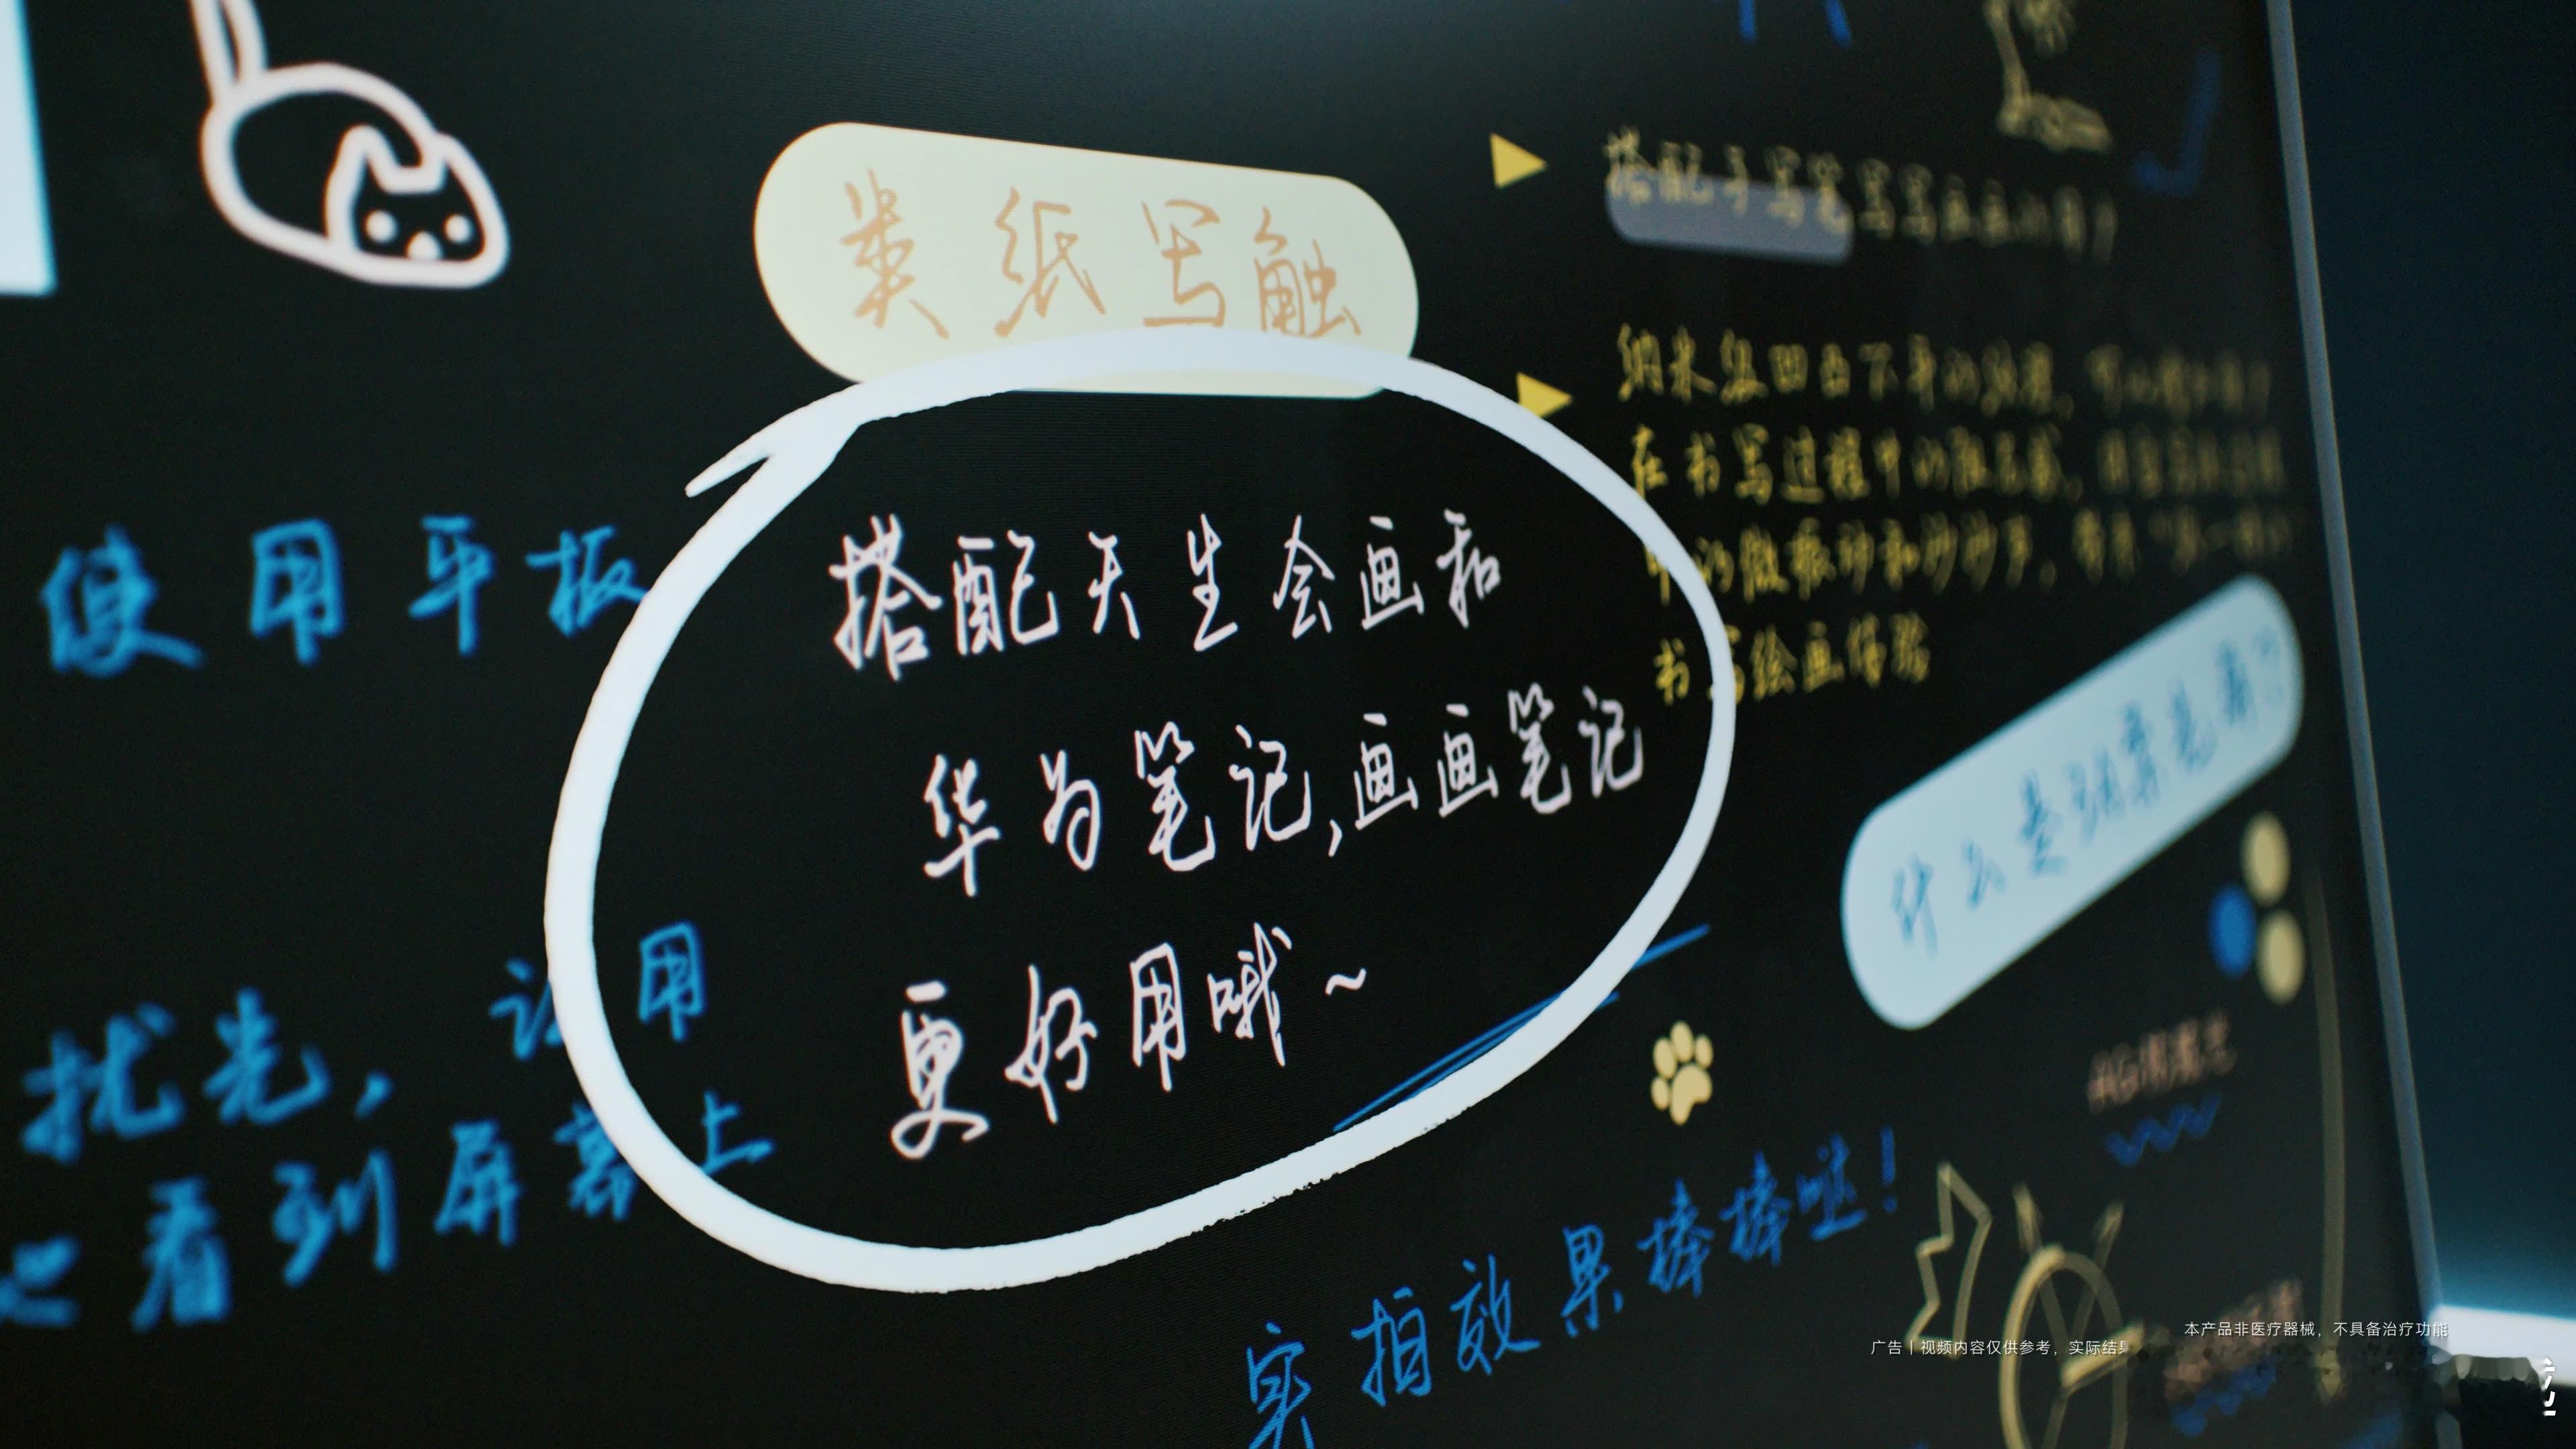 类纸写触
搭配手写笔写写画画
纳米级凹凸不平的纹理,
在书写过程中的阻尼感,
的微振动和沙沙声,
书写绘画体验
使用平板
搭配天生会画和
华为笔记,画画笔记
更好用哦~
什么是
扰光,让用
看到屏幕上
AG防眩光
实拍效果棒棒哒!
本产品非医疗器械,不具备治疗功能
广告|视频内容仅供参考,实际结